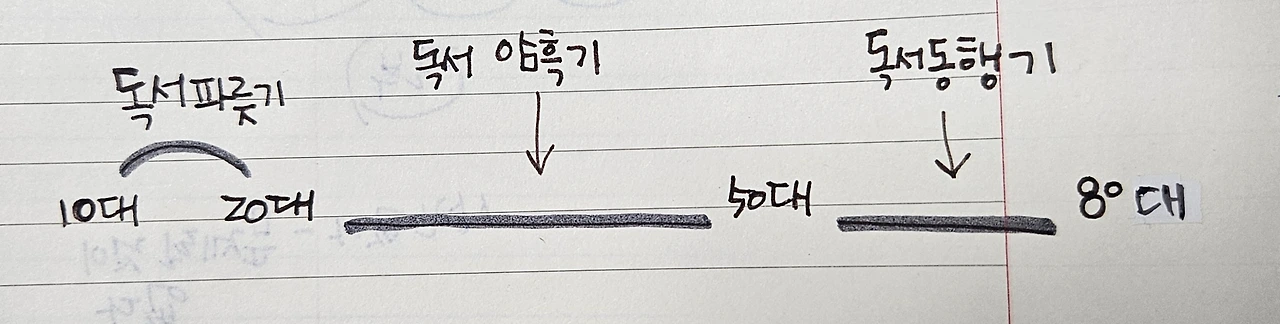 독서파릇기
독서 암흑기
독서동행기
10대
20대
50대
80대